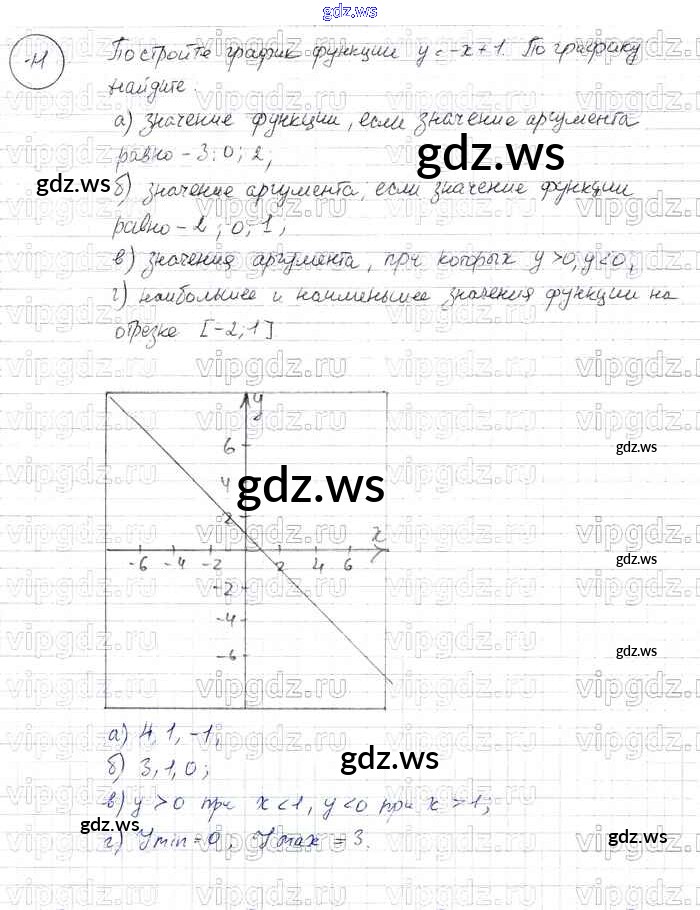 gdz.ws
-11
Постройте график функции y = -x + 1. По графику
найдите.
а) значение функции, если значение аргумента
равно -3; 0; 2,
б) значение аргумента, если значение функции
равно -2; 0; 1;
в) значения аргумента, при которых y > 0, y < 0;
г) наибольшее и наименьшее значения функции на
отрезке [-2; 1]
y
6
4
2
x
-6 -4 -2 2 4 6
-2
-4
-6
а) 4, 1, -1;
б) 3, 1, 0;
в) y > 0 при x < 1, y < 0 при x > 1;
г) Ymin = 0, Ymax = 3.
gdz.ws
gdz.ws
gdz.ws
gdz.ws
gdz.ws
gdz.ws
gdz.ws
gdz.ws
gdz.ws
vipgdz.ru